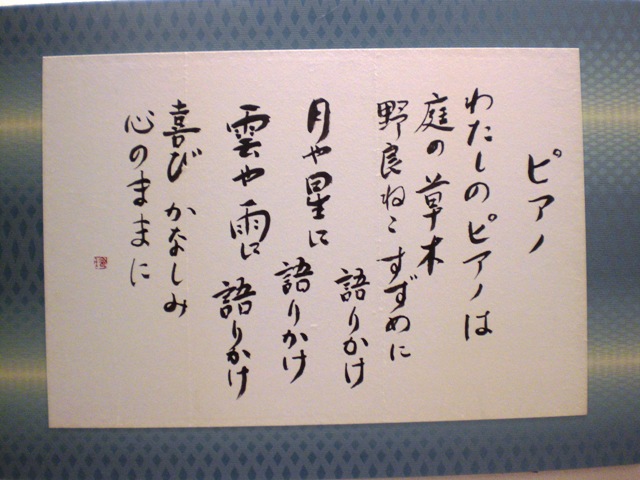 ピアノ
わたしのピアノは
庭の草木
野良ねこすずめに
語りかけ
月や星に
語りかけ
雲や雨に
語りかけ
喜びかなしみ
心のままに